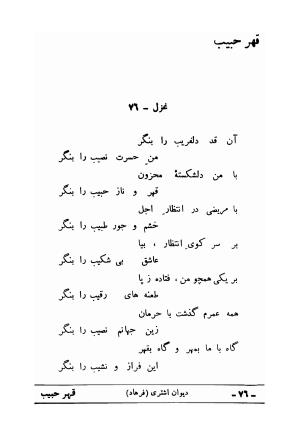 قهر حبیب
غزل - ۷۶
آن قد دلفریب را بنگر
من حسرت نصیب را بنگر
با من دلشکستهٔ محزون
قهر و ناز حبیب را بنگر
با مریضی در انتظار اجل
خشم و جور طبیب را بنگر
بر سر کوی انتظار ، بیا
عاشق بی شکیب را بنگر
بر یکی همچو من ، فتاده ز پا
طعنه های رقیب را بنگر
همه عمرم گذشت با حرمان
زین جهانم نصیب را بنگر
گاه با ما بمهر و گاه بقهر
این فراز و نشیب را بنگر
- ۷۶ - دیوان اشتری (فرهاد) قهر حبیب